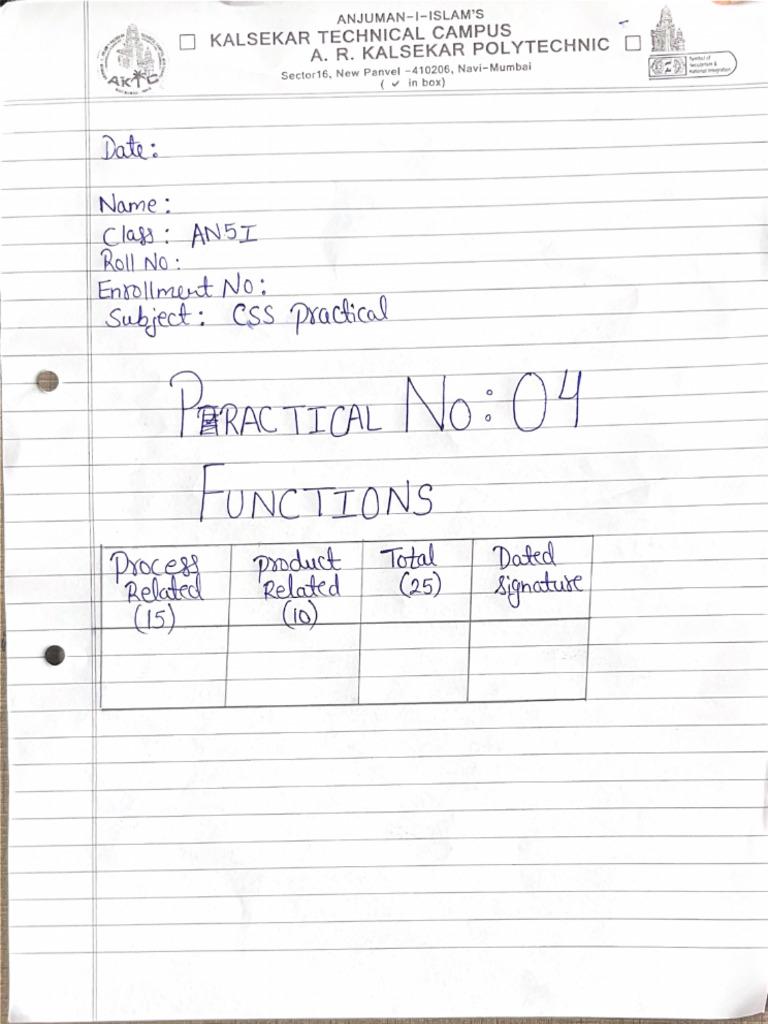 ANJUMAN-I-ISLAM'S
KALSEKAR TECHNICAL CAMPUS
A. R. KALSEKAR POLYTECHNIC
Sector16, New Panvel -410206, Navi-Mumbai
( ✓ in box)
AKTC
Symbol of
Secularism &
National Integration
Date:
Name:
Class: AN5I
Roll No:
Enrollment No:
Subject: CSS practical
PRACTICAL No: 04
FUNCTIONS
Process Related (15) | Product Related (10) | Total (25) | Dated Signature